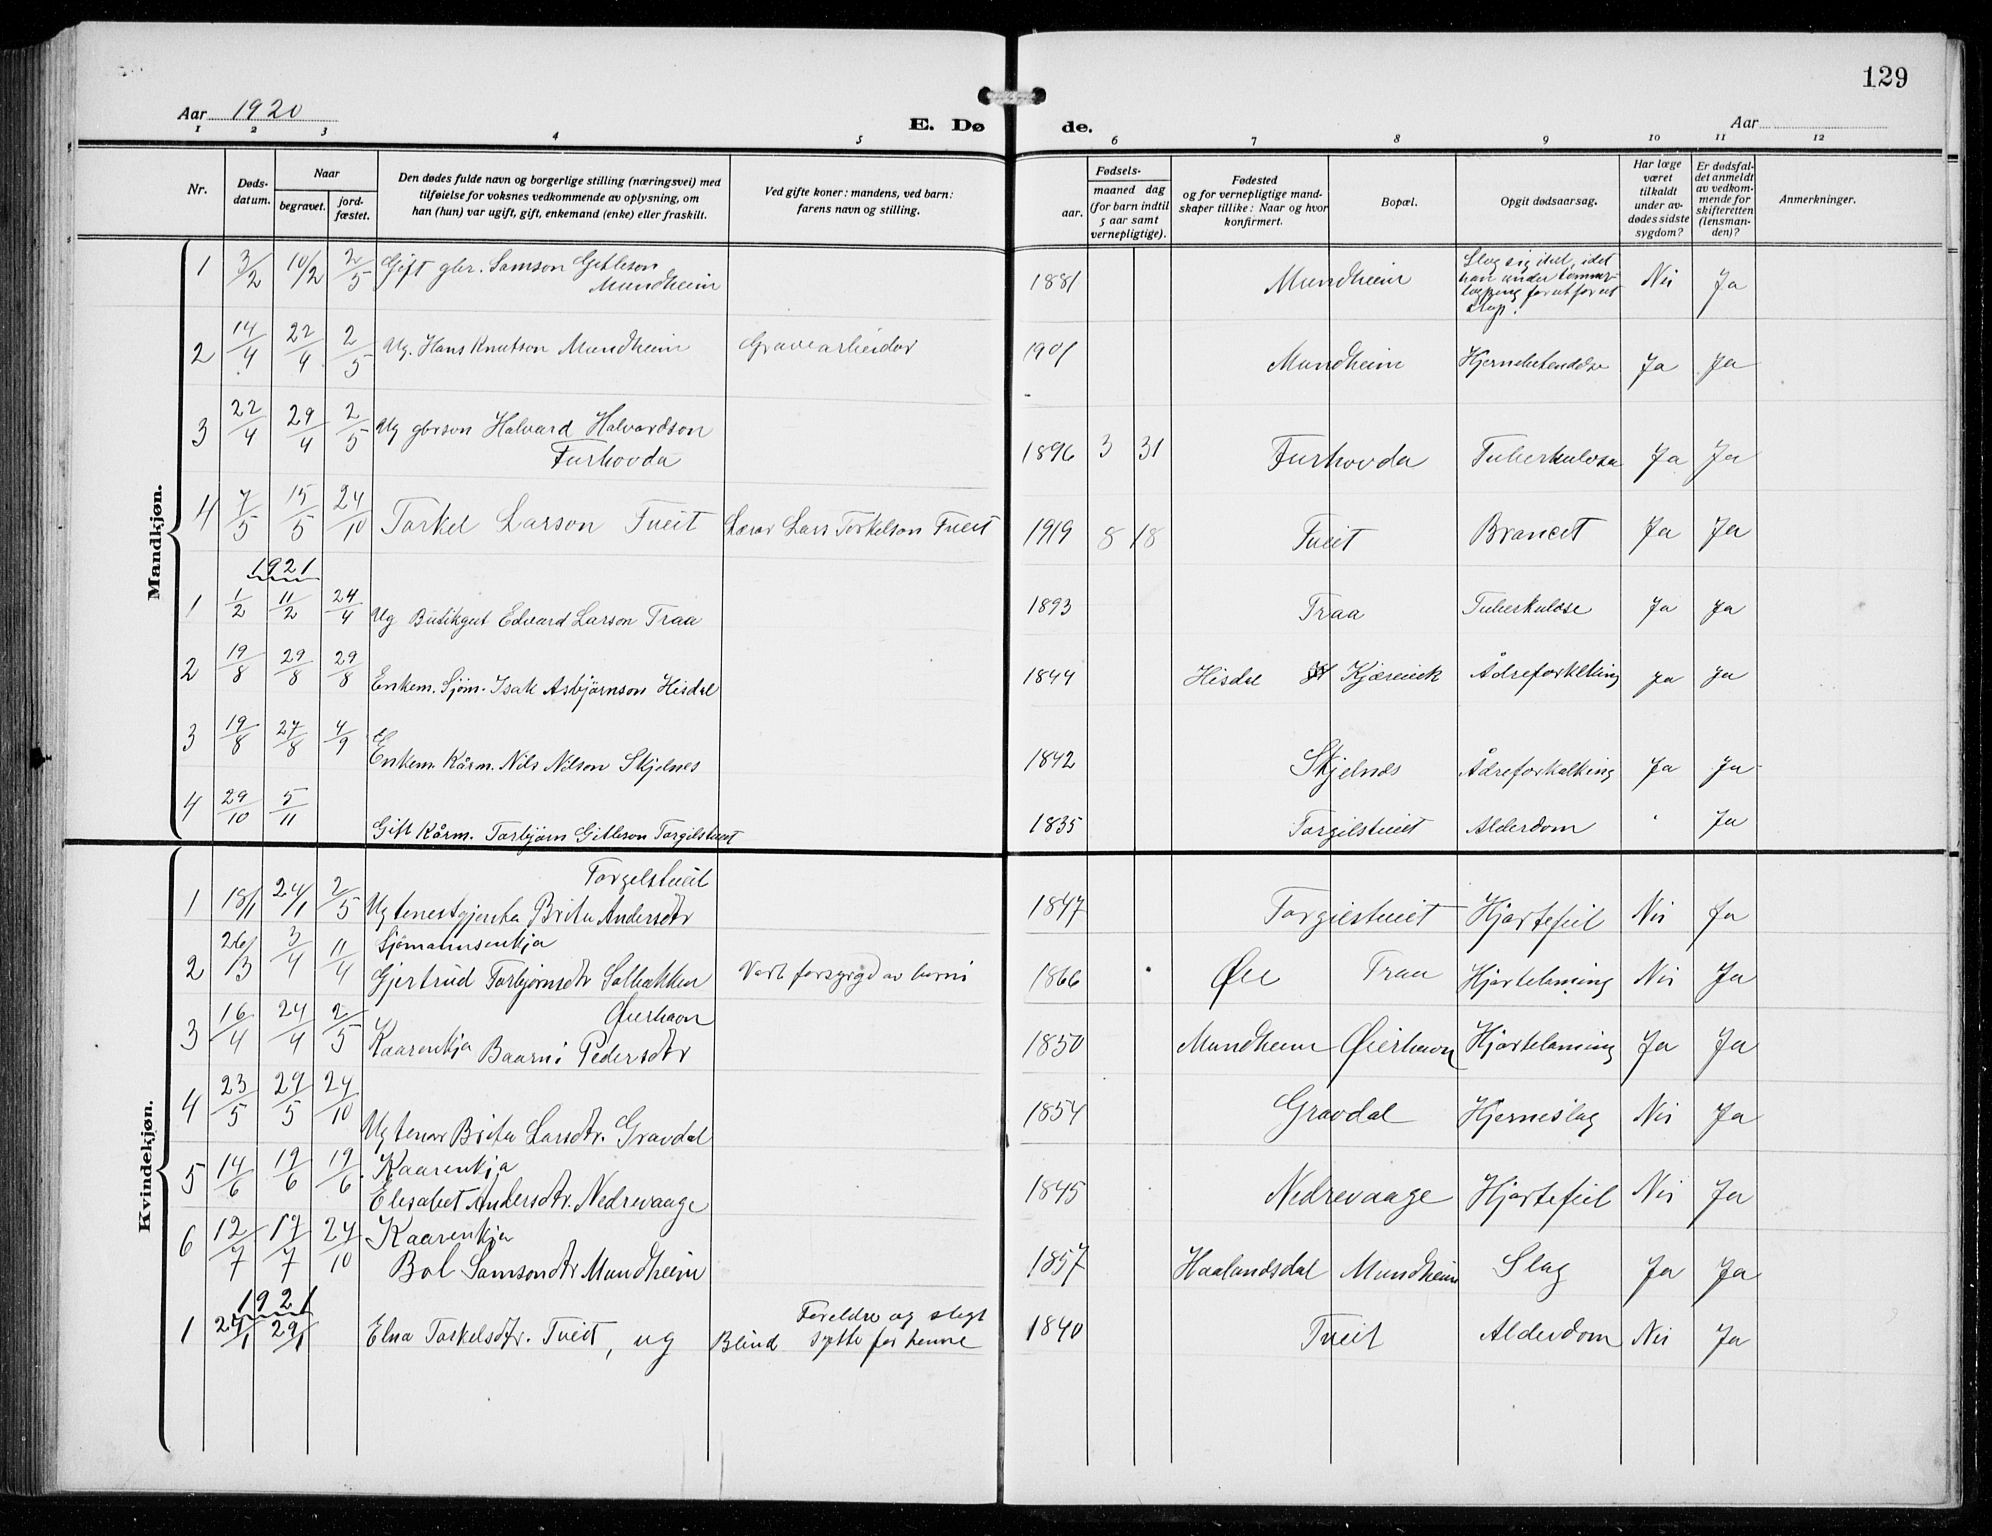 129
Aar 1920
E. Dø
de.
Aar
1 2 3 4 5 6 7 8 9 10 11 12
Nr.
Døds-
datum.
Naar
begravet.
jord-
fæstet.
Den dødes fulde navn og borgerlige stilling (næringsvei) med
tilføielse for voksnes vedkommende av oplysning, om
han (hun) var ugift, gift, enkemand (enke) eller fraskilt.
Ved gifte koner: mandens, ved barn:
farens navn og stilling.
Fødsels-
aar.
maaned dag
(for barn indtil
5 aar samt
vernepligtige).
Fødested
og for vernepligtige mand-
skaper tillike: Naar og hvor
konfirmert.
Bopæl.
Opgit dødsaarsag.
Har læge
været
tilkaldt
under av-
dødes sidste
sygdom?
Er dødsfal-
det anmeldt
av vedkom-
mende for
skifteretten
(lensman-
den)?
Anmerkninger.
Mandkjøn.
1 3/2 10/2 2/5 Gift gbr. Samson Gitleson
Mundheim 1881 Mundheim Slog sig ihel, idet
han under tømmer-
lapping forut for eit
stup. Nei Ja
2 14/4 22/4 2/5 Ug. Hans Knutson Mundheim Gravearbeider 1901 Mundheim Hjernebetendelse Ja Ja
3 22/4 29/4 2/5 Ug gbrson Halvard Halvardson
Furhovda 1896 3 31 Furhovda Tuberkulose Ja Ja
4 7/5 15/5 24/10 Torkel Larson Tveit Lærar Lars Torkelson Tveit 1919 8 18 Tveit Brancet Ja Ja
1921
1 1/2 11/2 24/4 Ug Butikgut Edvard Larson Traa 1893 Traa Tuberkulose Ja Ja
2 19/8 29/8 29/8 Enkem. Sjøm. Isak Asbjørnson Hisdal 1844 Hisdal Kjærevik Ådreforkalking Ja Ja
3 19/8 27/8 4/9 Enkem. Kårm. Nils Nilson Skjelnes 1842 Skjelnes Ådreforkalking Ja Ja
4 29/10 5/11 Gift Kårm. Torbjørn Gitleson Torgilstveit 1835 Torgilstveit Alderdom Ja
Kvindekjøn.
1 18/1 24/1 2/5 Torgelstveit
Ug tenestgjenta Brita Andersdtr 1847 Torgilstveit Hjartefeil Nei Ja
2 26/3 3/4 11/4 Sjømannsenkja
Gjertrud Torbjørnsdtr Solbakken Vart forsyrgd av borni 1866 Øie Traa Hjartelaming Nei Ja
3 16/4 24/4 2/5 Øierhavn
Kaarenkja Baarni Pedersdtr 1850 Mundheim Øierhavn Hjartelaming Ja Ja
4 23/5 29/5 24/10
Ug tenar Brita Larsdtr. Gravdal 1854 Gravdal Hjerneslag Nei Ja
5 14/6 19/6 19/6 Kaarenkja
Elisabet Andersdtr. Nedrevaage 1845 Nedrevaage Hjartefeil Nei Ja
6 12/7 17/7 24/10 Kaarenkja
Bol Samsondtr Mundheim 1857 Haalandsdal Mundheim Slag Ja Ja
1921
1 24/1 29/1 Elna Torkelsdtr. Tveit, ug Blind Foreldre og slegt
sytte for henne 1840 Tveit Alderdom Nei Ja